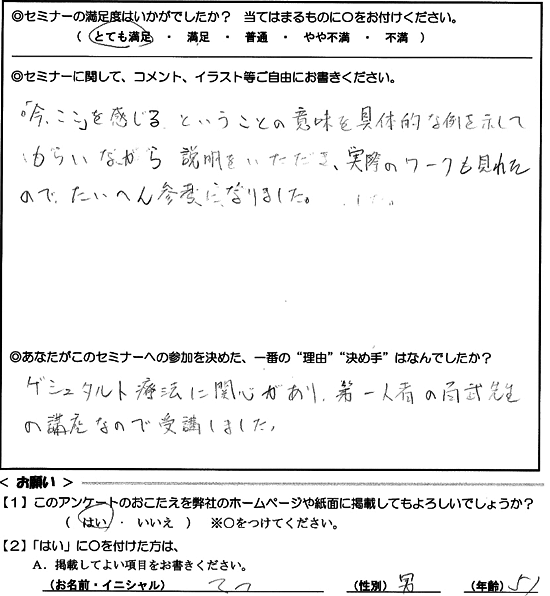 ◎セミナーの満足度はいかがでしたか？ 当てはまるものに○をお付けください。
（ とても満足 ・ 満足 ・ 普通 ・ やや不満 ・ 不満 ）
◎セミナーに関して、コメント、イラスト等ご自由にお書きください。
「今、ここ」を感じる ということの意味を具体的な例を示して
もらいながら 説明をいただき、実際のワークも見れた
ので、たいへん参考になりました。
◎あなたがこのセミナーへの参加を決めた、一番の“理由”“決め手”はなんでしたか？
ゲシュタルト療法に関心があり、第一人者の百武先生
の講座なので受講しました。
＜ お願い ＞
【１】このアンケートのおこたえを弊社のホームページや紙面に掲載してもよろしいでしょうか？
（ はい ・ いいえ ） ※○をつけてください。
【２】「はい」に○を付けた方は、
Ａ．掲載してよい項目をお書きください。
（お名前・イニシャル） （性別）男 （年齢）51